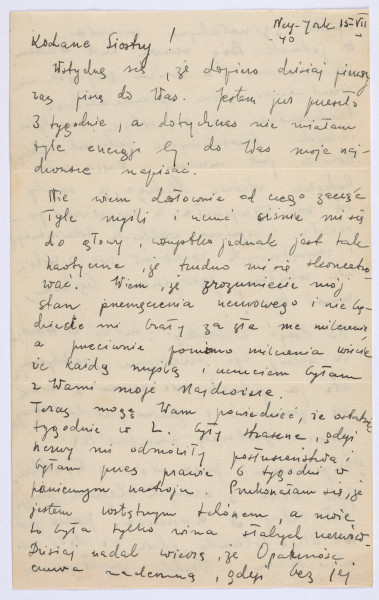 New-York 15 VII
- 40
Kochane Siostry!
Wstydzę się, że dopiero dzisiaj pierwszy
raz piszę do Was. Jestem już przeszło
3 tygodnie, a dotychczas nie miałam
tyle energji by do Was moje naj-
droższe napisać.
Nie wiem dosłownie od czego zacząć
Tyle myśli i uczuć ciśnie mi się
do głowy, wszystko jednak jest tak
chaotyczne, że trudno mi się skoncentro
wać. Wiem, że zrozumiecie mój
stan przemęczenia nerwowego i nie bę-
dziecie mi brały za złe me milczenie
a przeciwnie pomimo milczenia wierzcie
że każdą myślą i uczuciem byłam
z Wami moje Najdroższe.
Teraz mogę Wam powiedzieć, że ostatnie
tygodnie w L. były straszne, gdyż
nerwy mi odmówiły posłuszeństwa i
byłam przez prawie 6 tygodni w
panicznym nastroju. Przekonałam się, że
jestem wstrętnym tchórzem, a może
to była tylko wina słabych nerwów.
Dzisiaj nadal wierzę, że Opatrzność
czuwa nademną, gdyż bez jej